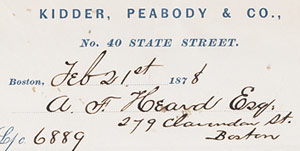 KIDDER, PEABODY & CO.,
No. 40 STATE STREET.
Boston, Feb 21st 1878
A. F. Heard Esq.
279 Clarendon St.
Boston
L/c 6889